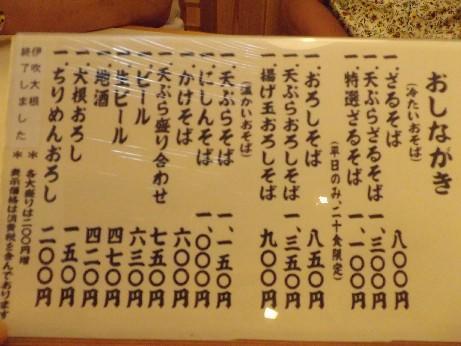 おしながき
(冷たいおそば)
一.ざるそば 八〇〇円
一.天ぷらざるそば 一、三〇〇円
一.特選ざるそば 一、一〇〇円
(平日のみ、二十食限定)
一.おろしそば 八五〇円
一.天ぷらおろしそば 一、三五〇円
一.揚げ玉おろしそば 九〇〇円
(温かいおそば)
一.天ぷらそば 一、一五〇円
一.にしんそば 一、〇〇〇円
一.かけそば 六〇〇円
一.天ぷら盛り合わせ 七五〇円
一.ビール 六三〇円
一.生ビール 四七〇円
一.地酒 四二〇円
一.大根おろし 一五〇円
一.ちりめんおろし 二〇〇円
伊吹大根終了しました
※ 各大盛りは二〇〇円増
※ 表示価格は消費税を含んでおります